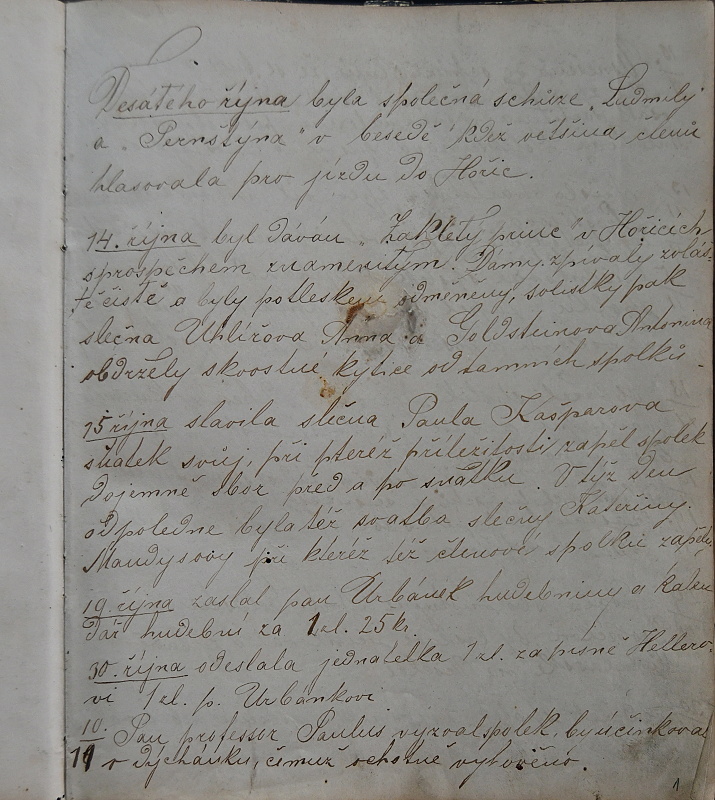 Desátého října byla společná schůze „Ludmily"
a „Pernštýna" v besedě kdež většina členů
hlasovala pro jízdu do Hořic.
14. října byl dáván „Zakletý princ" v Hořicích
s prospěchem znamenitým. Dámy zpívaly zvláš-
tě čistě a byly potleskem odměněny, solistky pak
slečna Uhlířova Anna a Goldsteinova Antonina
obdržely skvostné kytice od tamních spolků.
15 října slavila slečna Paula Kašparova
sňatek svůj, při kteréž příležitosti zapěl spolek
dojemně sbor před a po sňatku. V týž den
odpoledne byla též svatba slečny Kateřiny
Mandysovy při kteréž též členové spolku zapěli.
19. října zaslal pan Urbánek hudebniny a kalen
dář hudební za 1 zl. 25 kr.
30. října odeslala jednatelka 1 zl. za písně Hellero-
vi 1 zl. p. Urbánkovi
10.
11 Pan professor Paulus vyzval spolek, by účinkoval
v dýchánku, čímuž ochotně vyhověno.
1